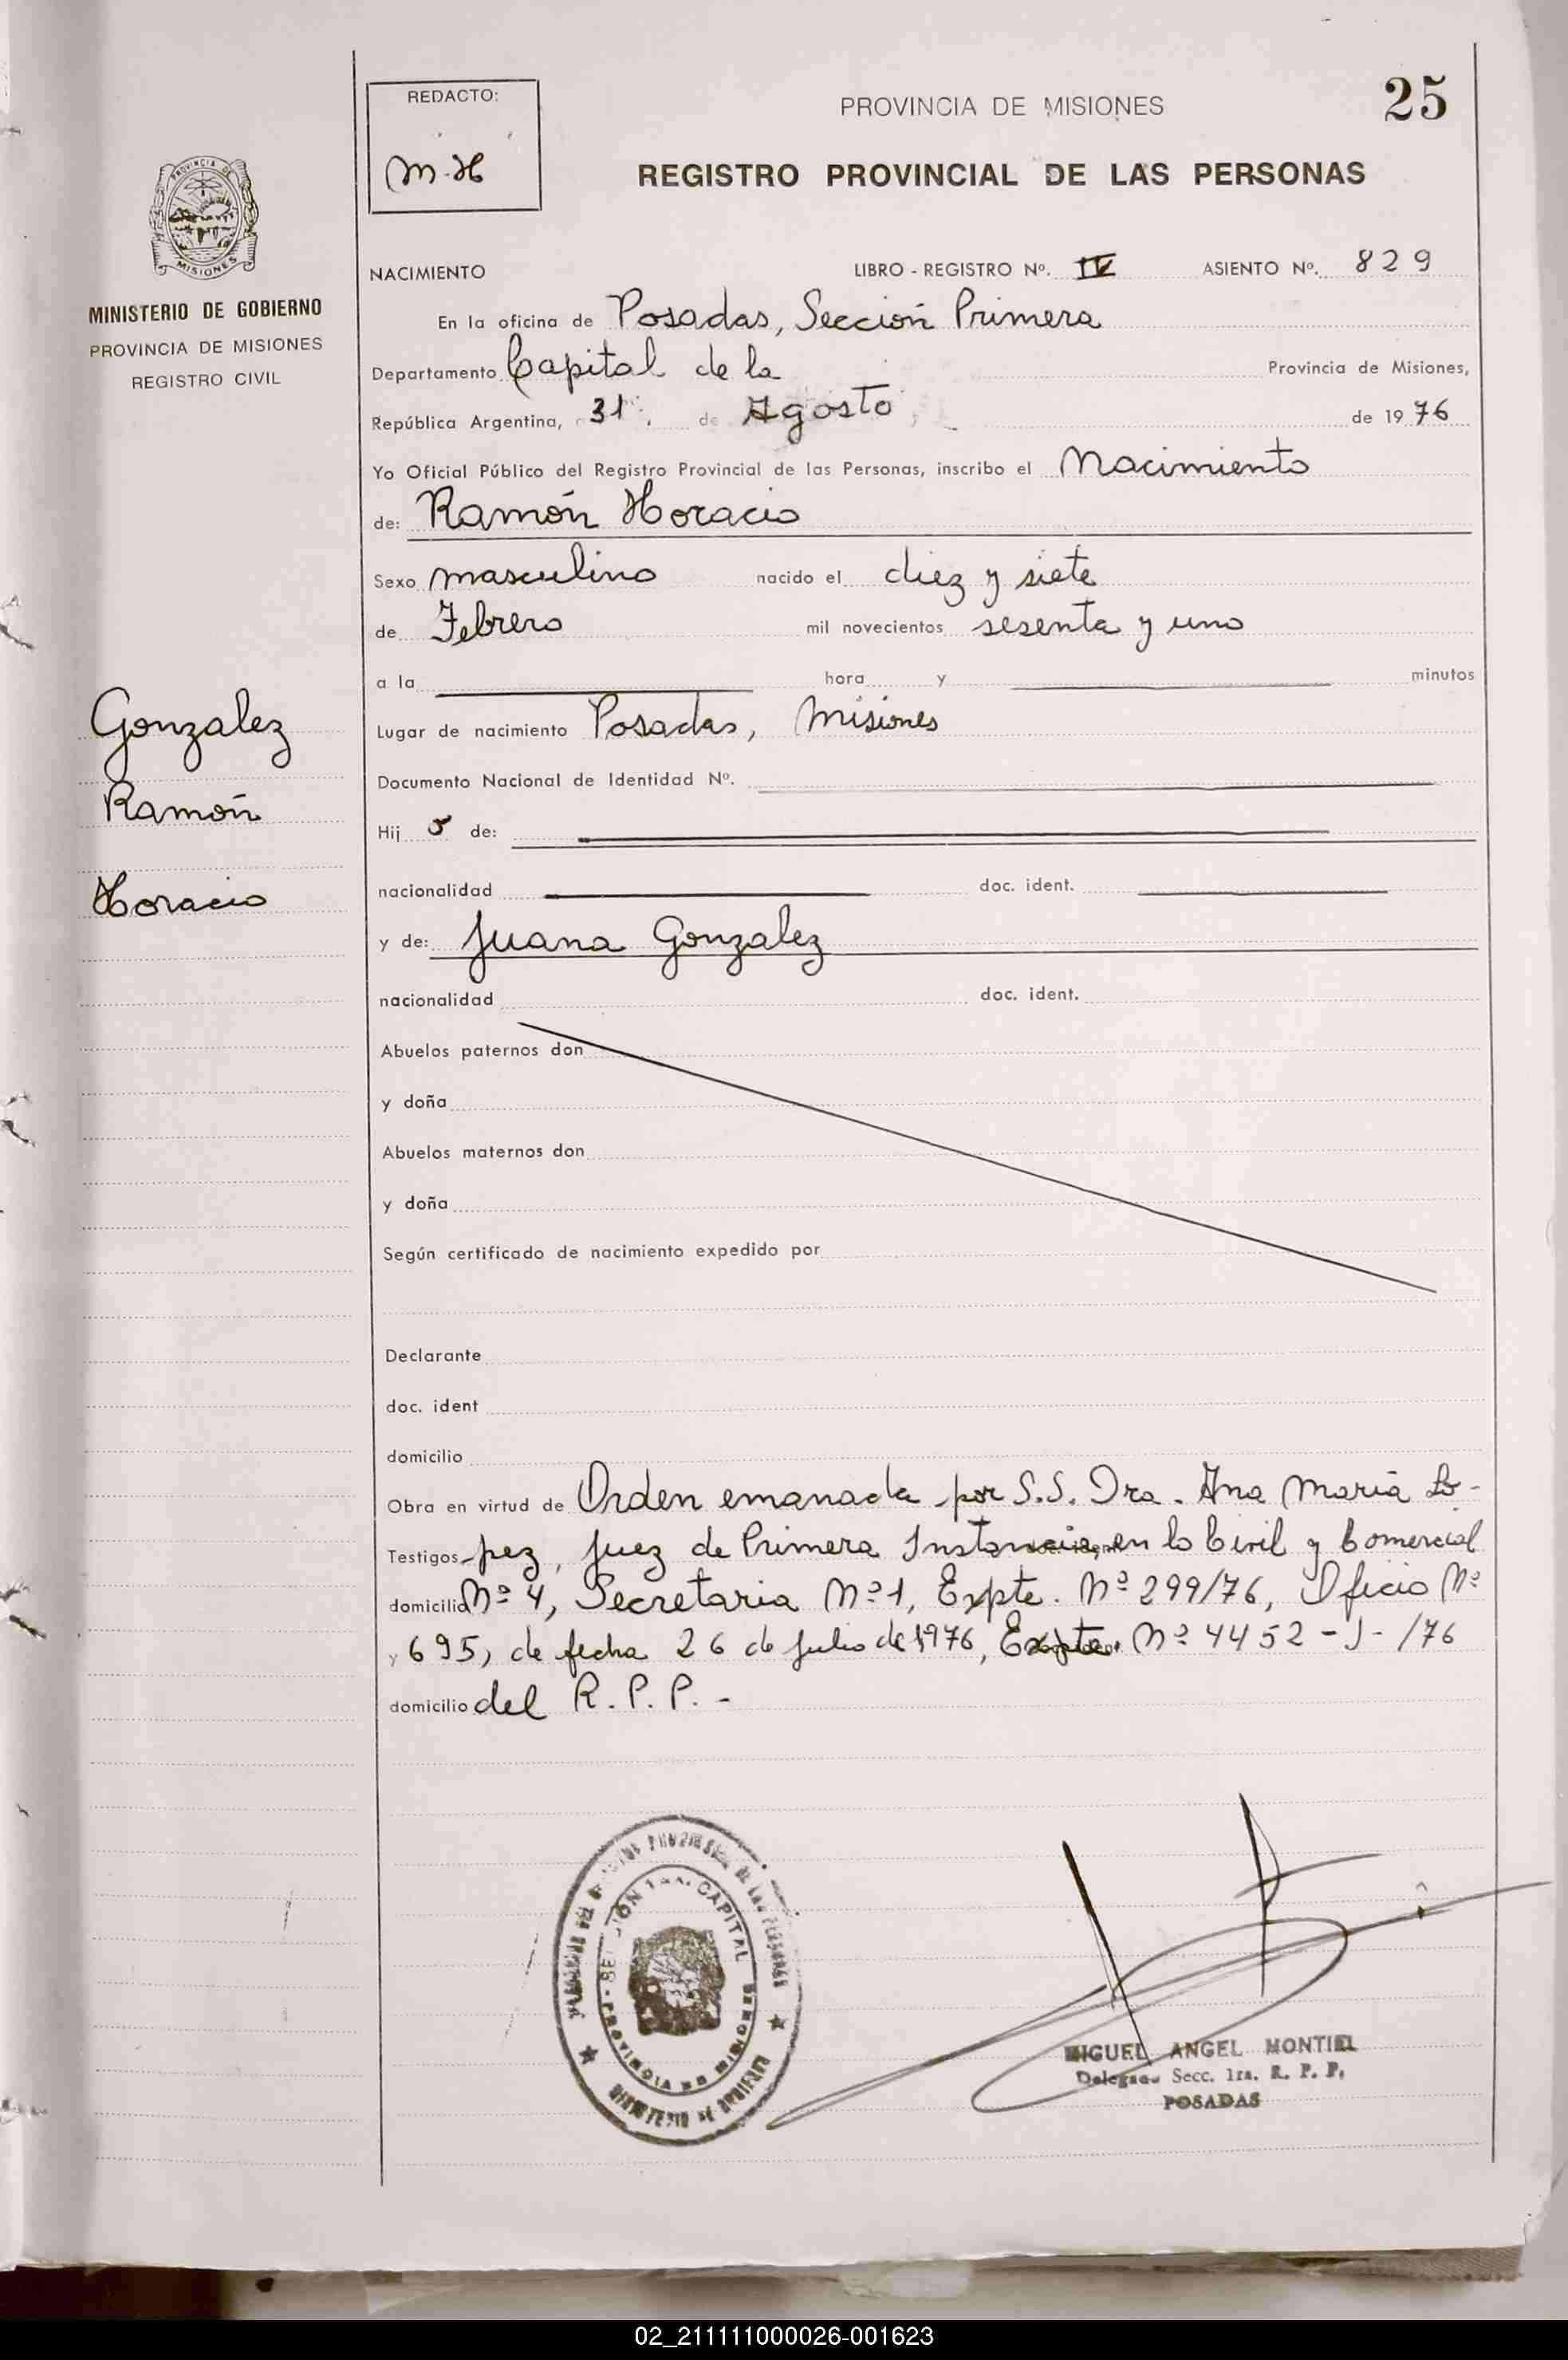 REDACTO:
M.H
PROVINCIA DE MISIONES
25
REGISTRO PROVINCIAL DE LAS PERSONAS
PROVINCIA DE
MISIONES
MINISTERIO DE GOBIERNO
PROVINCIA DE MISIONES
REGISTRO CIVIL
NACIMIENTO LIBRO - REGISTRO Nº. IV ASIENTO Nº. 829
En la oficina de Posadas, Sección Primera
Departamento Capital de la Provincia de Misiones,
República Argentina, 31 de Agosto de 1976
Yo Oficial Público del Registro Provincial de las Personas, inscribo el Nacimiento
de: Ramón Horacio
Sexo masculino nacido el diez y siete
de Febrero mil novecientos sesenta y uno
a la hora y minutos
Lugar de nacimiento Posadas, Misiones
Documento Nacional de Identidad Nº.
Hij o de:
nacionalidad doc. ident.
y de: Juana Gonzalez
nacionalidad doc. ident.
Abuelos paternos don
y doña
Abuelos maternos don
y doña
Según certificado de nacimiento expedido por
Declarante
doc. ident
domicilio
Obra en virtud de Orden emanada por S.S. Dra. Ana María Ló-
Testigos pez, Juez de Primera Instancia, en lo Civil y Comercial
domicilio Nº 4, Secretaria Nº 1, Expte. Nº 299/76, Oficio Nº
y 695, de fecha 26 de Julio de 1976, Expte. Nº 4452-J-/76
domicilio del R.P.P.-
Gonzalez
Ramón
Horacio
CAPITAL
PROVINCIA DE MISIONES
MINISTERIO DE GOBIERNO
MIGUEL ANGEL MONTIEL
Delegado Secc. 1ra. R. P. P.
POSADAS
02_211111000026-001623